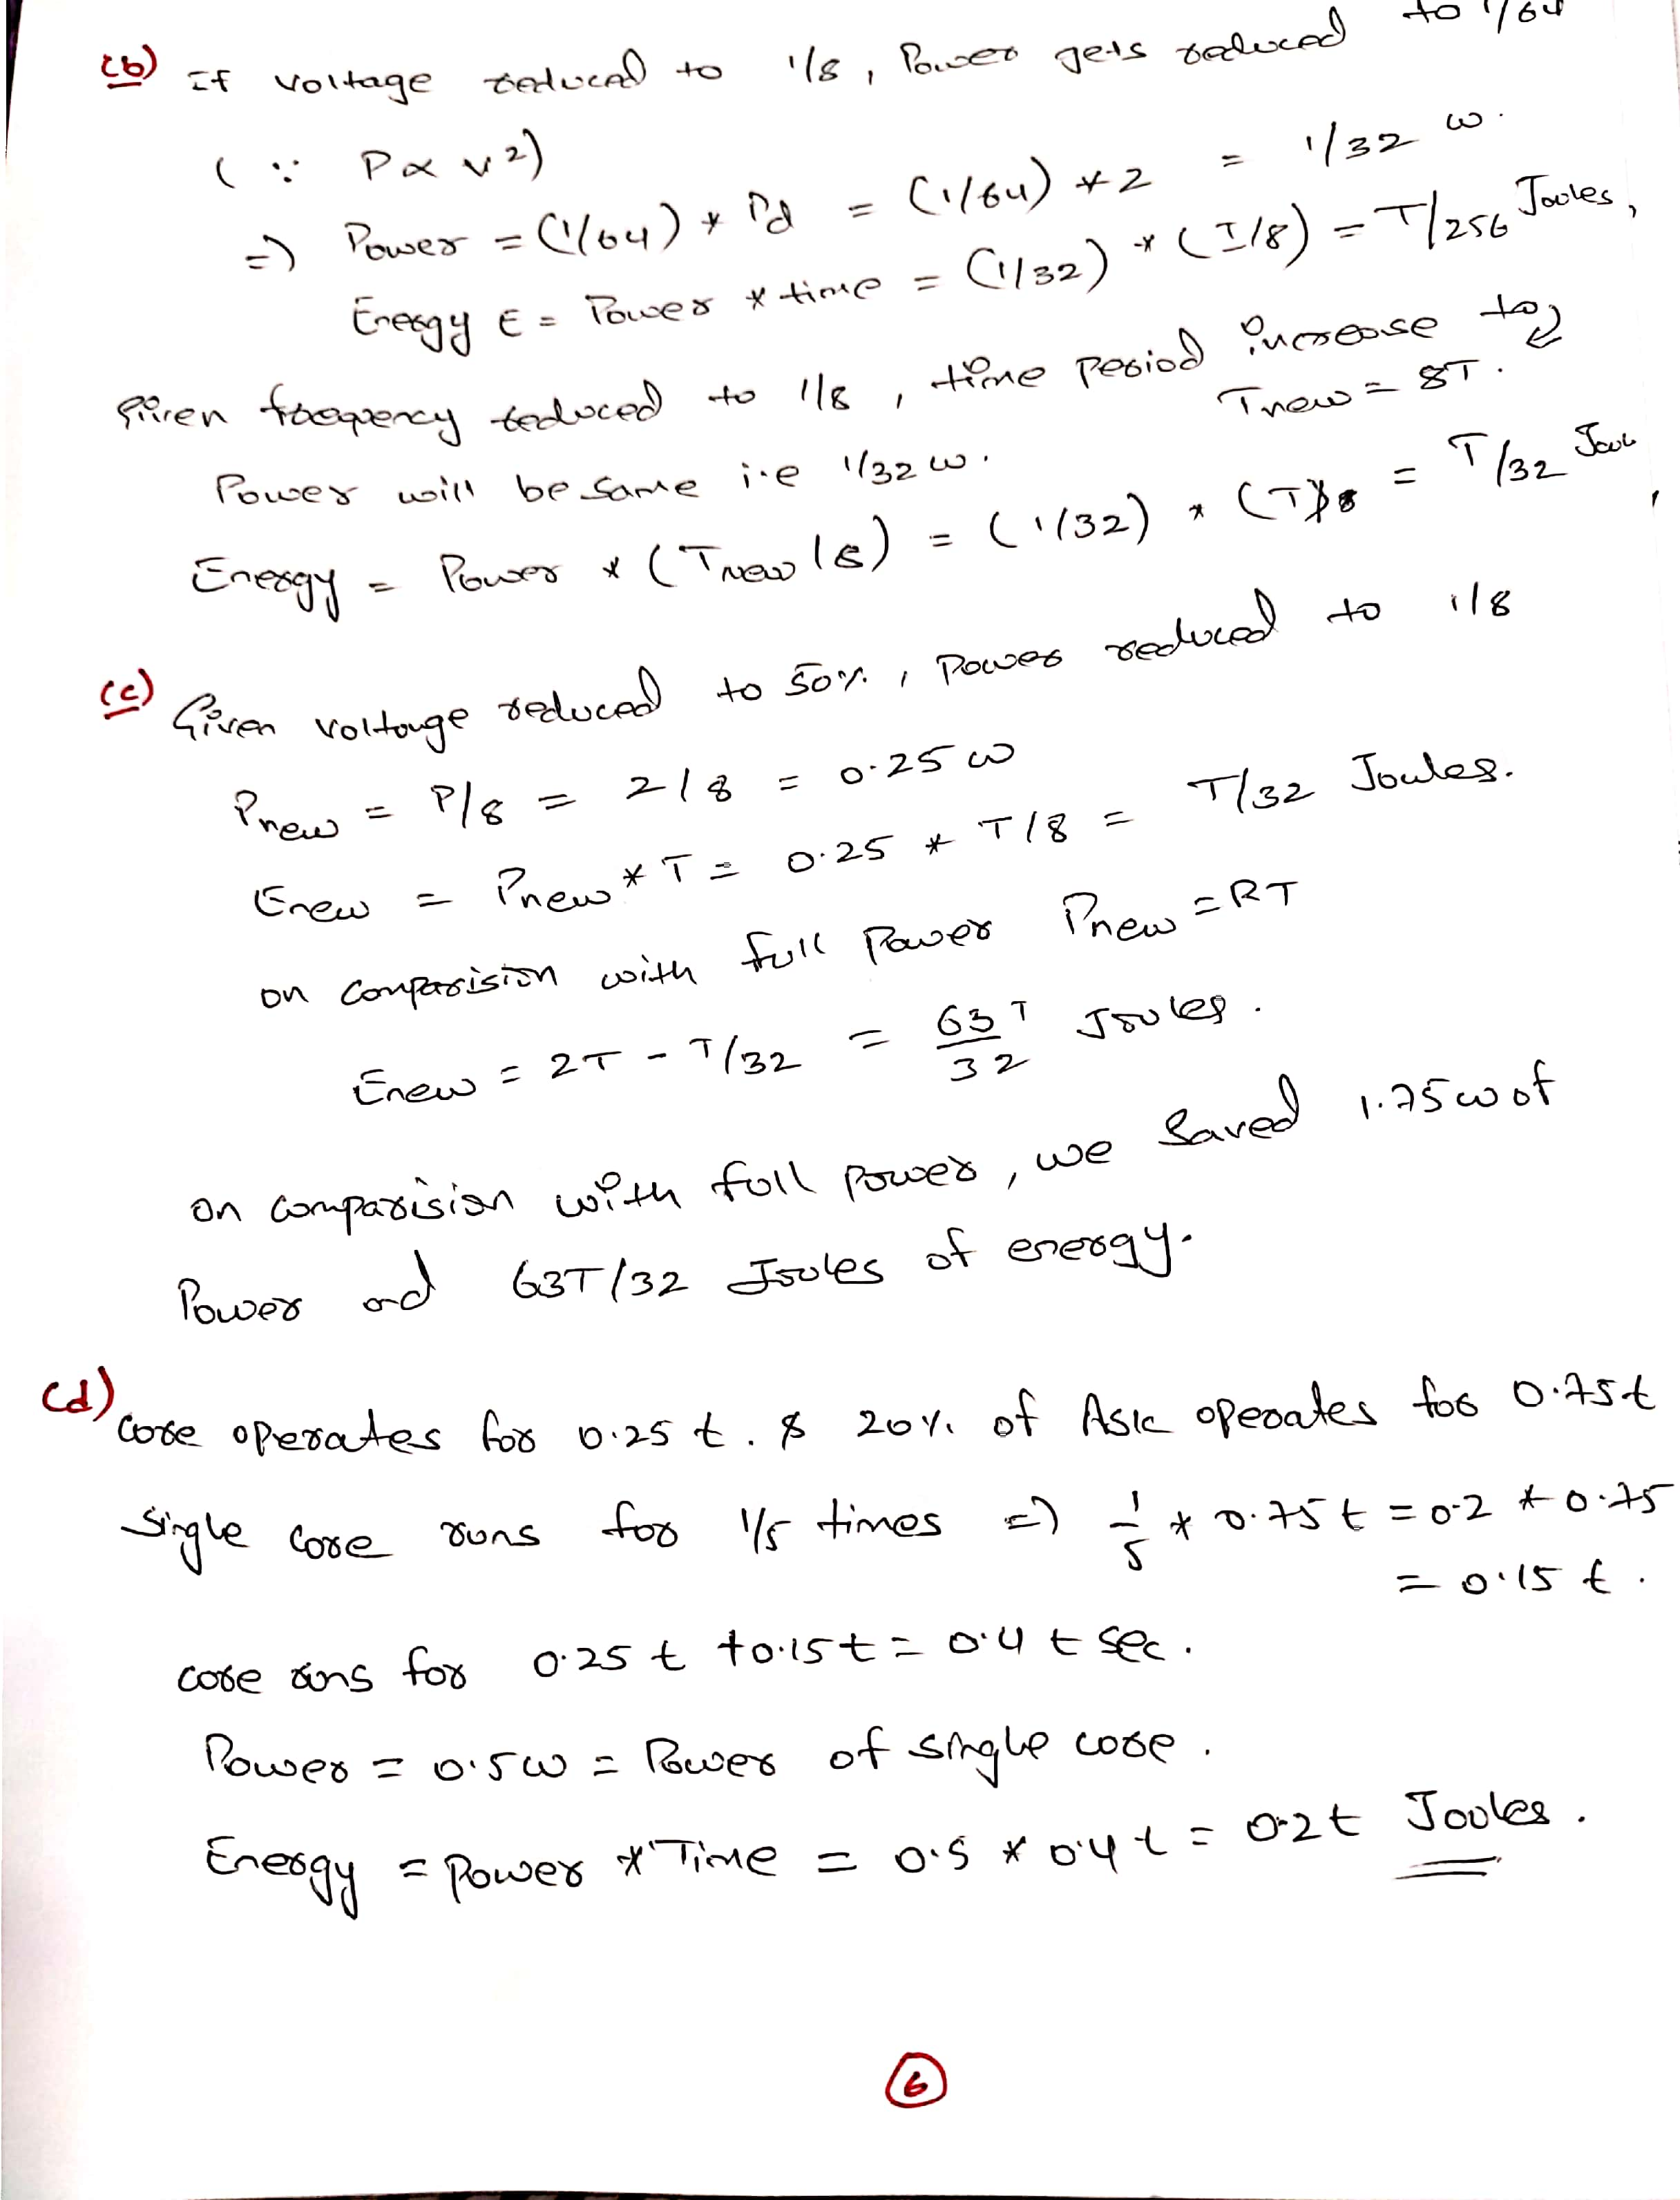 (b) If voltage reduced to 1/8, Power gets reduced to 1/64
(∵ P∝ v²)
=) Power = (1/64) * Pd = (1/64) * 2 = 1/32 w.
Energy E = Power * time = (1/32) * (T/8) = T/256 Joules,
Given frequency reduced to 1/8, time period increase to
Tnew = 8T.
Power will be same i.e 1/32 w.
Energy = Power * (Tnew/8) = (1/32) * (T) = T/32 Joul
(c) Given voltouge reduced to 50%, Power reduced to 1/8
Pnew = P/8 = 2/8 = 0.25 w
Enew = Pnew * T = 0.25 * T/8 = T/32 Joules.
on comparision with full Power Pnew = RT
Enew = 2T - T/32 = 63T/32 Joules.
on comparision with full power, we saved 1.75w of
Power and 63T/32 Joules of energy.
(d) Core operates for 0.25 t. & 20% of Asic operates for 0.75t
Single core runs for 1/5 times =) 1/5 * 0.75t = 0.2 * 0.75
= 0.15 t.
core runs for 0.25 t + 0.15 t = 0.4 t sec.
Power = 0.5w = Power of single core.
Energy = Power * Time = 0.5 * 0.4 t = 0.2t Joules.
6